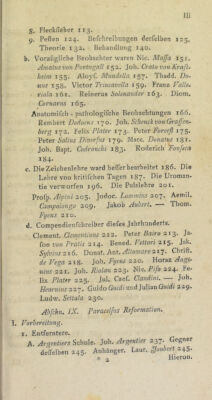 III
8. Fleckfieber 113.
9. Pesten 124. Beschreibungen derselben 125.
Theorie 132. Behandlung 140.
b. Vorzügliche Beobachter waren Nic. Massa 151.
Amatus von Portugall 152. Joh. Crato von Krafft-
heim 155. Aloys. Mundella 157. Thadd. Du-
nus 158. Victor Trincavella 159. Franz Valle-
riola 161. Reinerus Solenander 163. Diom.
Cornarus 165.
Anatomisch-pathologische Beobachtungen 166.
Rembert Dodoens 170. Joh. Schenck von Graffen-
berg 172. Felix Plater 173. Peter Foreest 175.
Peter Salius Diversus 179. Marc. Donatus 181.
Joh. Bapt. Codronchi 183. Roderich Fonseca
184.
c. Die Zeichenlehre ward besser bearbeitet 186. Die
Lehre von kritischen Tagen 187. Die Uroman-
tie verworfen 196. Die Pulslehre 201.
Prosp. Alpini 205. Jodoc. Lommius 207. Aemil.
Campolongo 209. Jakob Aubert. — Thom.
Fyens 210.
d. Compendienschreiber dieses Jahrhunderts.
Clement. Clementinus 212. Peter Bairo 213. Ja-
son von Pratis 214. Bened. Vettori 215. Jak.
Sylvius 216. Donat. Ant. Altomare 217. Christ.
de Vega 218. Joh. Fyens 220. Horaz Auge-
nius 221. Joh. Riolan 223. Nic. Piso 224. Fe-
lix Plater 225. Joh. Caes. Claudini. — Joh.
Heurnius 227. Guido Guidi und Julian Guidi 229.
Ludw. Settala 230.
Abschn. IX. Paracelsus Reformation.
I. Vorbereitung.
1. Entferntere.
A. Argentiers Schule. Joh. Argentier 237. Gegner
desselben 245. Anhänger. Laur. Joubert 245.
* 2
Hieron.